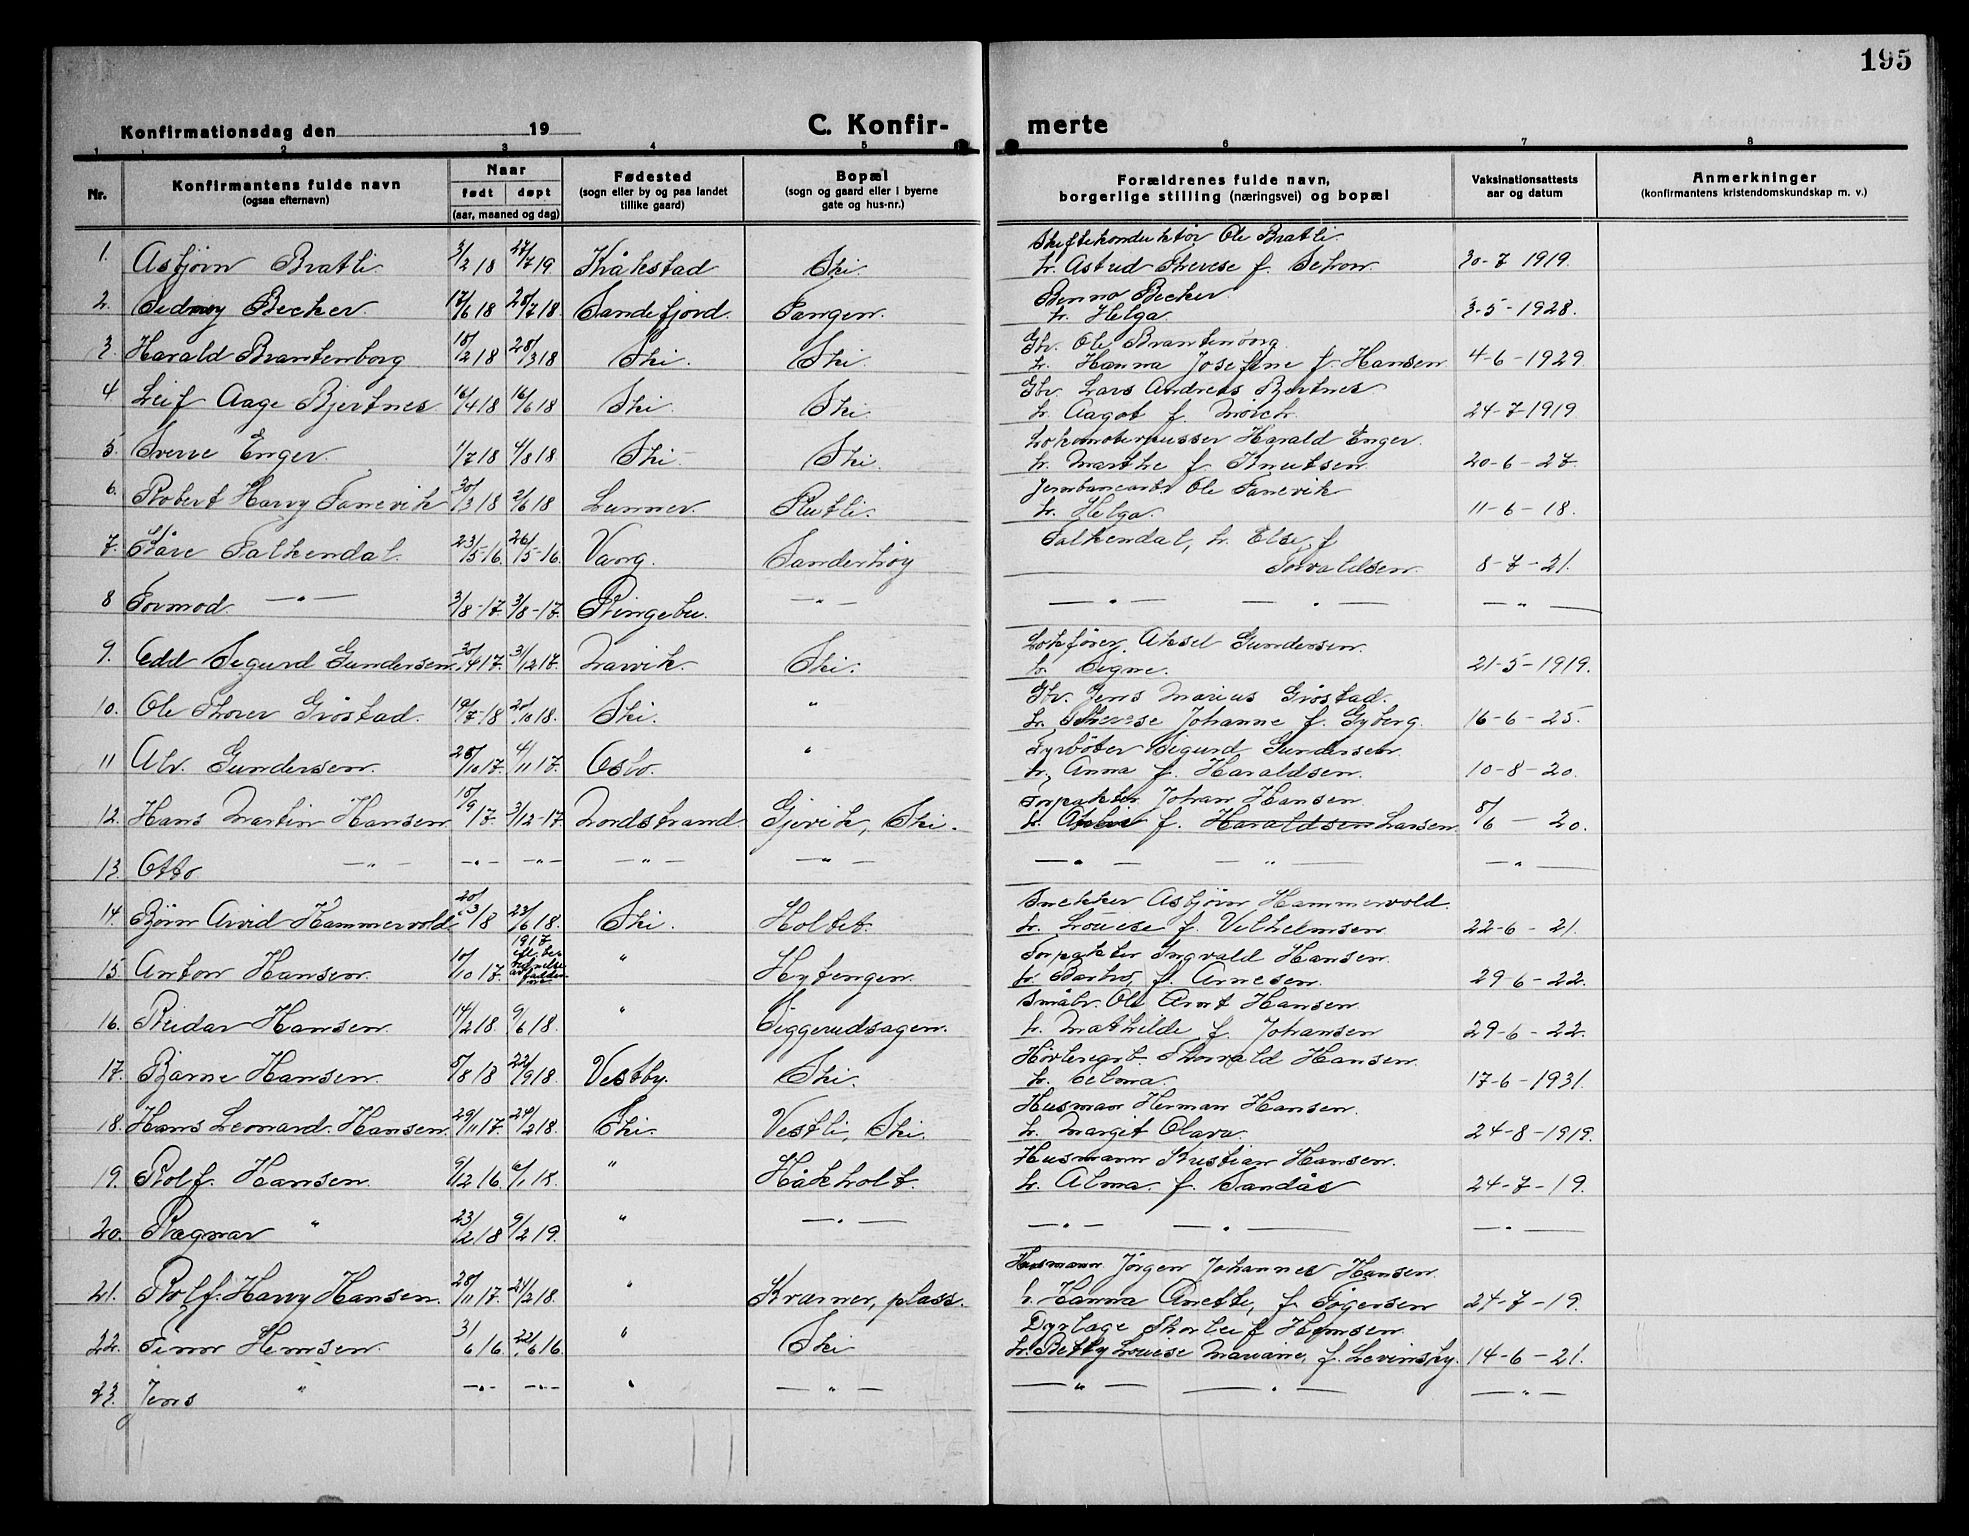 195
Konfirmationsdag den 19 C. Konfir- merte
1 2 3 4 5 6 7 8
Nr. Konfirmantens fulde navn (ogsaa efternavn) Naar født døpt (aar, maaned og dag) Fødested (sogn eller by og paa landet tillike gaard) Bopæl (sogn og gaard eller i byerne gate og hus-nr.) Forældrenes fulde navn, borgerlige stilling (næringsvei) og bopæl Vaksinationsattests aar og datum Anmerkninger (konfirmantens kristendomskundskap m. v.)
Skiftekonduktør Ole Bratli
1. Asbjørn Bratli 3/2 18 27/7 19 Kråkstad Ski. h. Astrud Therese f. 30-7 1919.
Benno Becker
2. Becker 17/6 18 28/7 18 Sandefjord. Tangen. h. Helga. 3-5-1928.
Gbr. Ole Brantenborg
3. Harald Brantenborg 18/2 18 28/3 18 Ski. Ski. h. Hanna Josefine f. Hansen 4-6-1929.
Gbr. Lars Andreas Bjertnes
4 Leif Aage Bjertnes 16/4 18 16/6 18 Ski. Ski. h. Aagot f. Mörch. 24-7-1919
Harald Enger.
5. Sverre Enger. 1/7 18 4/8 18 Ski Ski. h. Marthe f. Knutsen 20-6-27
Jernbanearb. Ole Tanevik
6. Robert Harry Tanevik 30/3 18 2/6 18 Lunner. Rutli. h. Helga. 11-6-18.
Falkendal, h. Else f
7. Kåre Falkendal. 23/5-16. 26/5-16. Vang. Sanderhøy Torvaldsen. 8-7-21.
8 Tormod. —"— 3/8-17. 3/8-17. Ringebu. —"— —"— —"— —"—
Lokfører. Aksel Gundersen.
9. Odd Sigurd Gundersen. 30/4 17. 3/12 17. Narvik. Ski. h. Signe. 21-5-1919.
Gbr. Jens Marius Gröstad.
10. Ole Thorer Gröstad. 19/7-18 20/10 18. Ski. " h. Therese Johanne f. Gyberg. 16-6-25.
Fyrböter Sigurd Gundersen
11 Alv. Gundersen. 28/10 17. 4/11 17. Oslo. " h. Anna f. Haraldsen. 10-8-20.
Forpakter Johan Hansen
12. Hans Martin Hansen 18/9 17. 3/12-17. Nordstrand Gjevik, Ski. h. f. Haraldsen Larsen 8/6 - 20.
13. Otto —"— —"— —"— —"— —"— —"— —"— —"—
Snekker Asbjörn Hammervold.
14. Björn Arvid Hammervold. 20/3 18 23/6 18. Ski. Holtet. h. Louise f. Vilhelmsen 22-6-21.
1917 Forpakter Ingvald Hansen.
15 Anton Hansen. 10/10 17. " Hytengen. h. f. Arnesen. 29-6-22.
Småbr. Ole Arnt Hansen
16. Reidar Hansen. 14/2 18. 9/6 18. " Siggerudsagen. h. Mathilde f. Johansen 29-6-22.
Thorvald Hansen.
17. Bjarne Hansen. 5/8 18 22/9 18. Vestby. Ski. h. Selma. 17-6-1931.
Husmann Herman Hansen.
18. Hans Leonard. Hansen. 29/11 17. 24/2 18. Ski. Vestli, Ski. h. Margit Olava. 24-8-1919.
Husmann Kristian Hansen.
19. Rolf. Hansen. 9/12 16. 6/1 18. " Håkholt. h. Alma. f. Sandås 24-7-19.
20. Ragnar " 23/2 18 9/2 19. " —"— —"— —"— —"—
Husmann Jörgen Johannes Hansen.
21. Rolf. Harry Hansen. 28/11 17. 24/2 18. " Kramer, plass. h. Hanna Anette, f. 24-7-19.
Dyrlæge Thorleif Hemsen
22. Finn Hemsen. 3/6 16. 22/6 16. " Ski h. Betty Louise Mariane, f. 14-6-21.
23. Jens " —"— —"— " —"— —"— —"— —"—